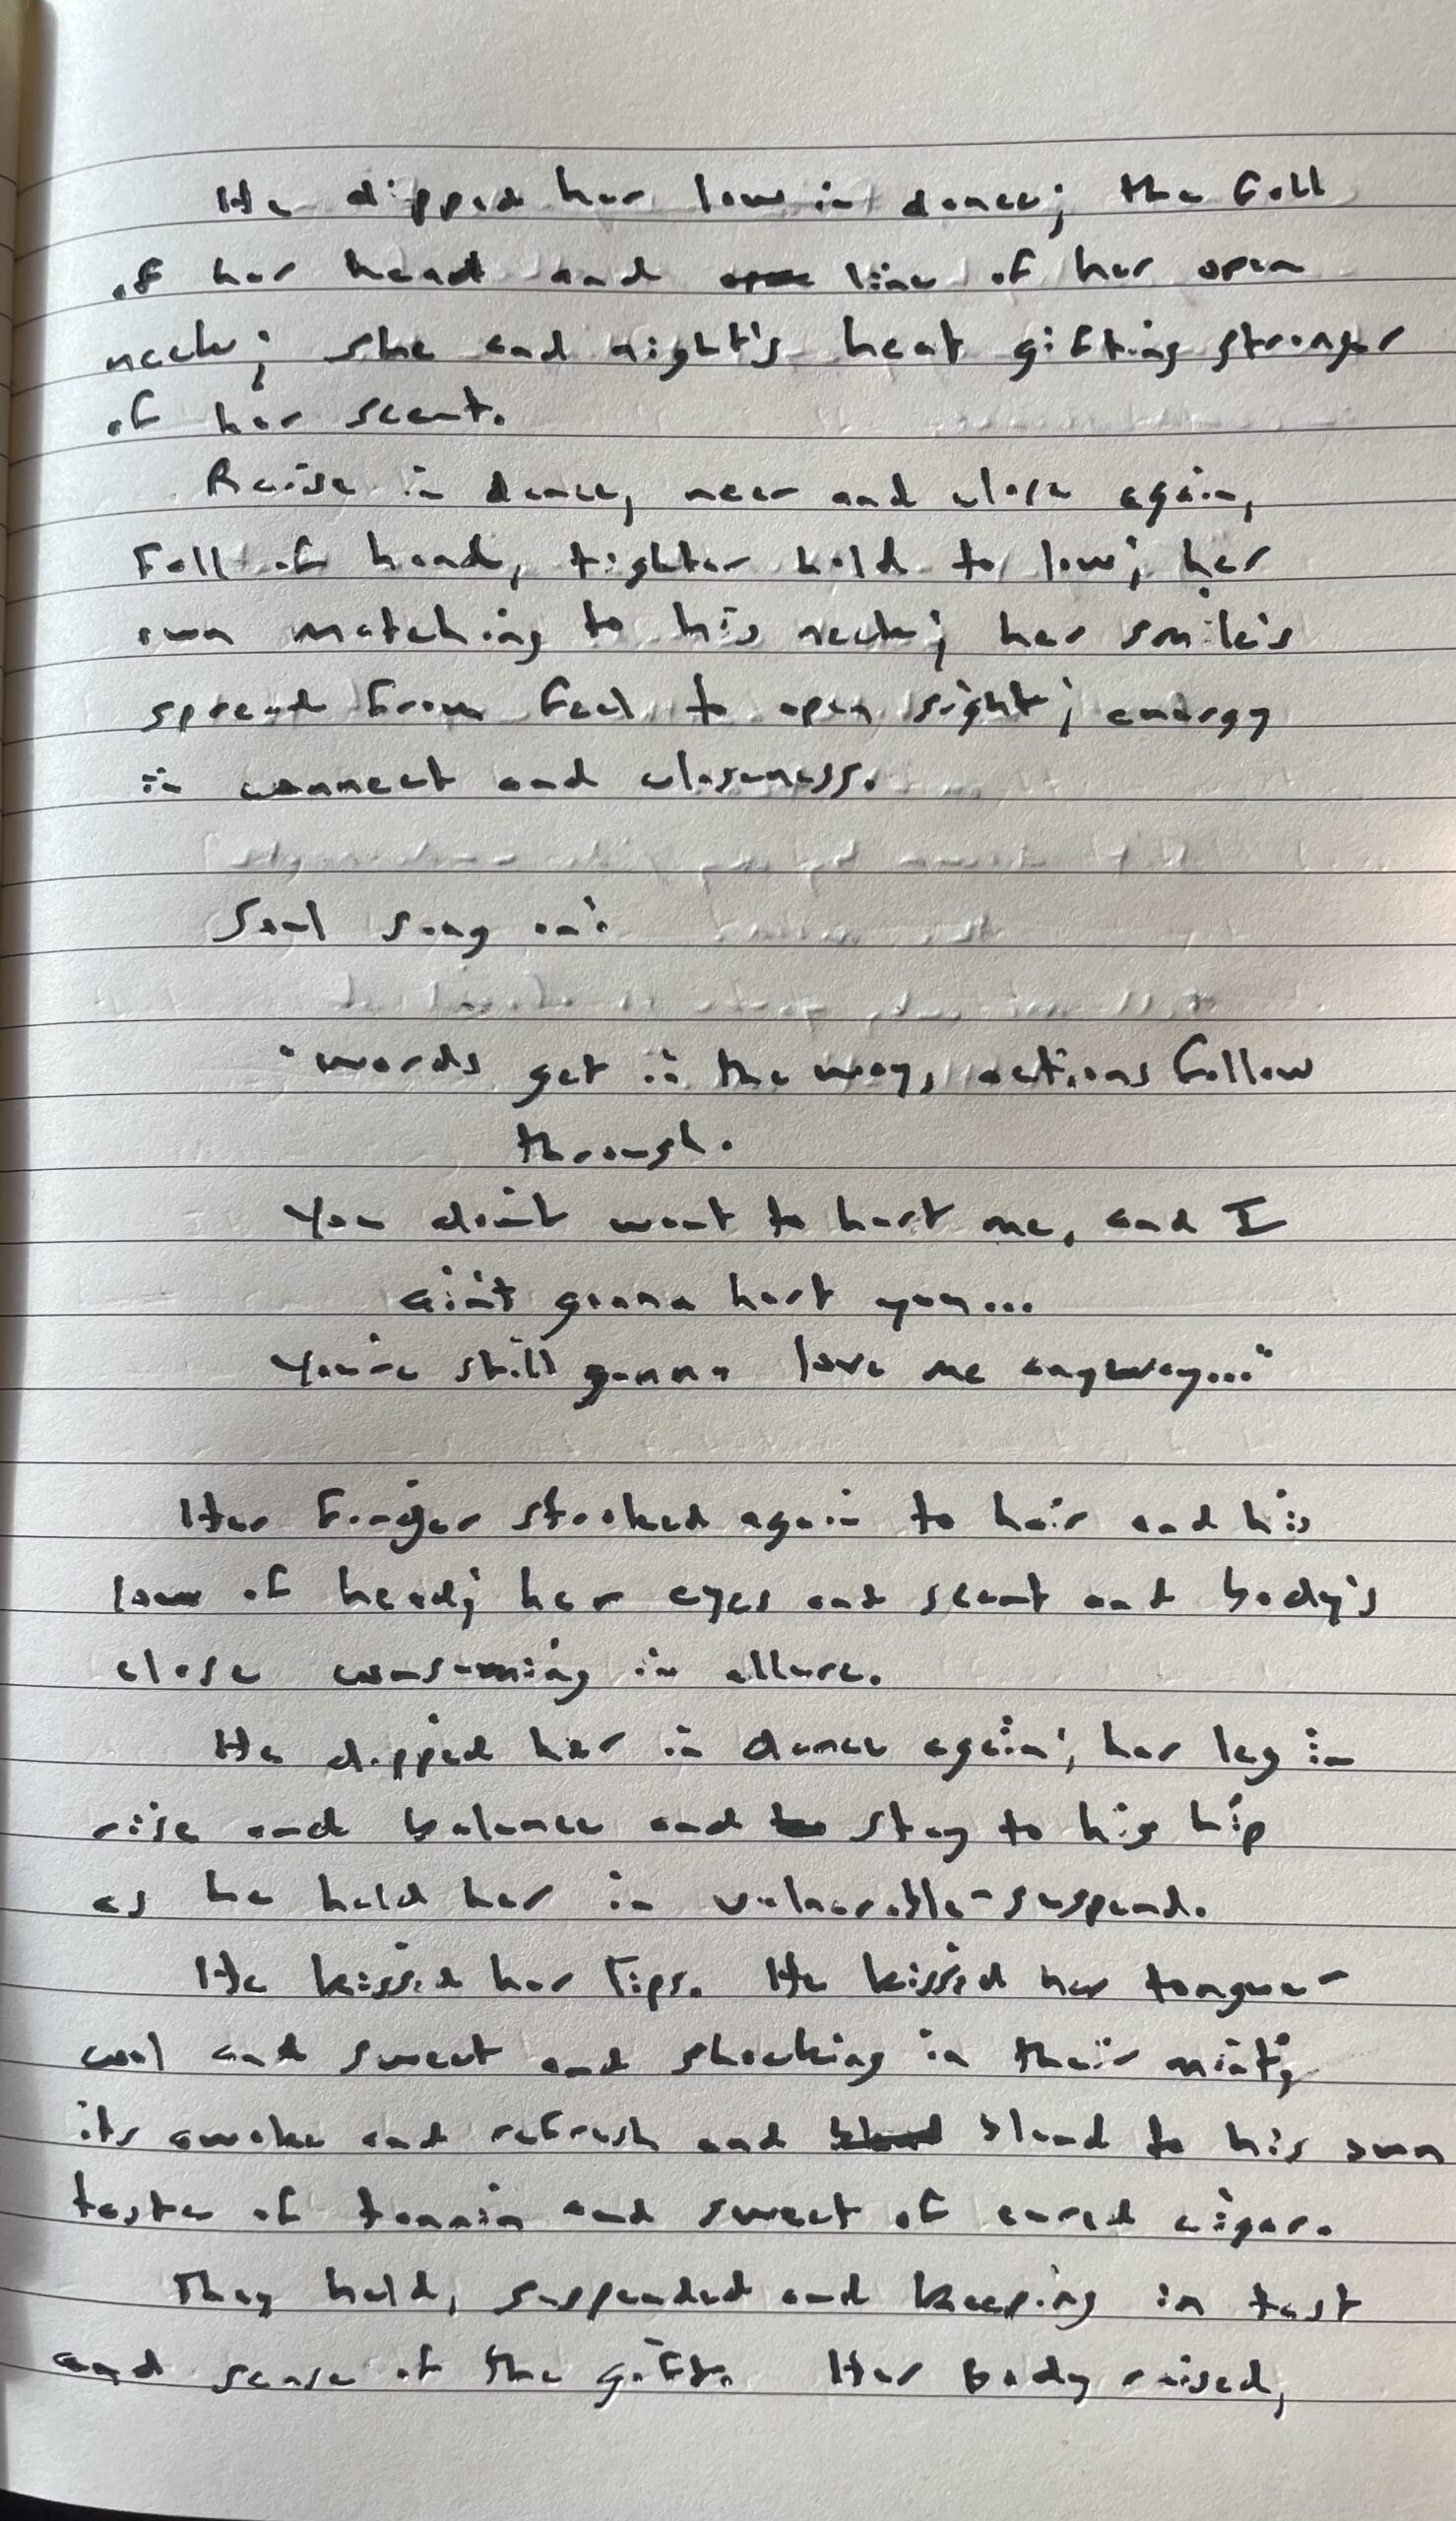 He dipped her low in dance; the fall
of her head and line of her open
neck; she and night's heat gifting stronger
of her scent.
Raise in dance, near and close again,
Fall of head, tighter hold to low; her
own matching to his neck; her smile's
spread from feel to open sight; energy
in connect and closeness.
Soul song on:
"words get in the way, actions follow
through.
You don't want to hurt me, and I
ain't gonna hurt you...
You're still gonna love me anyway..."
Her finger stroked again to hair and his
low of head; her eyes and scent and body's
close consuming in allure.
He dipped her in dance again; her leg in
rise and balance and stay to his hip
as he held her in vulnerable-suspend.
He kissed her lips. He kissed her tongue-
cool and sweet and shocking in their mint;
its awoke and refresh and blend to his own
taste of tannin and sweet of cured cigar.
They held, suspended and keeping in tast
and sense of the gift. Her body raised,